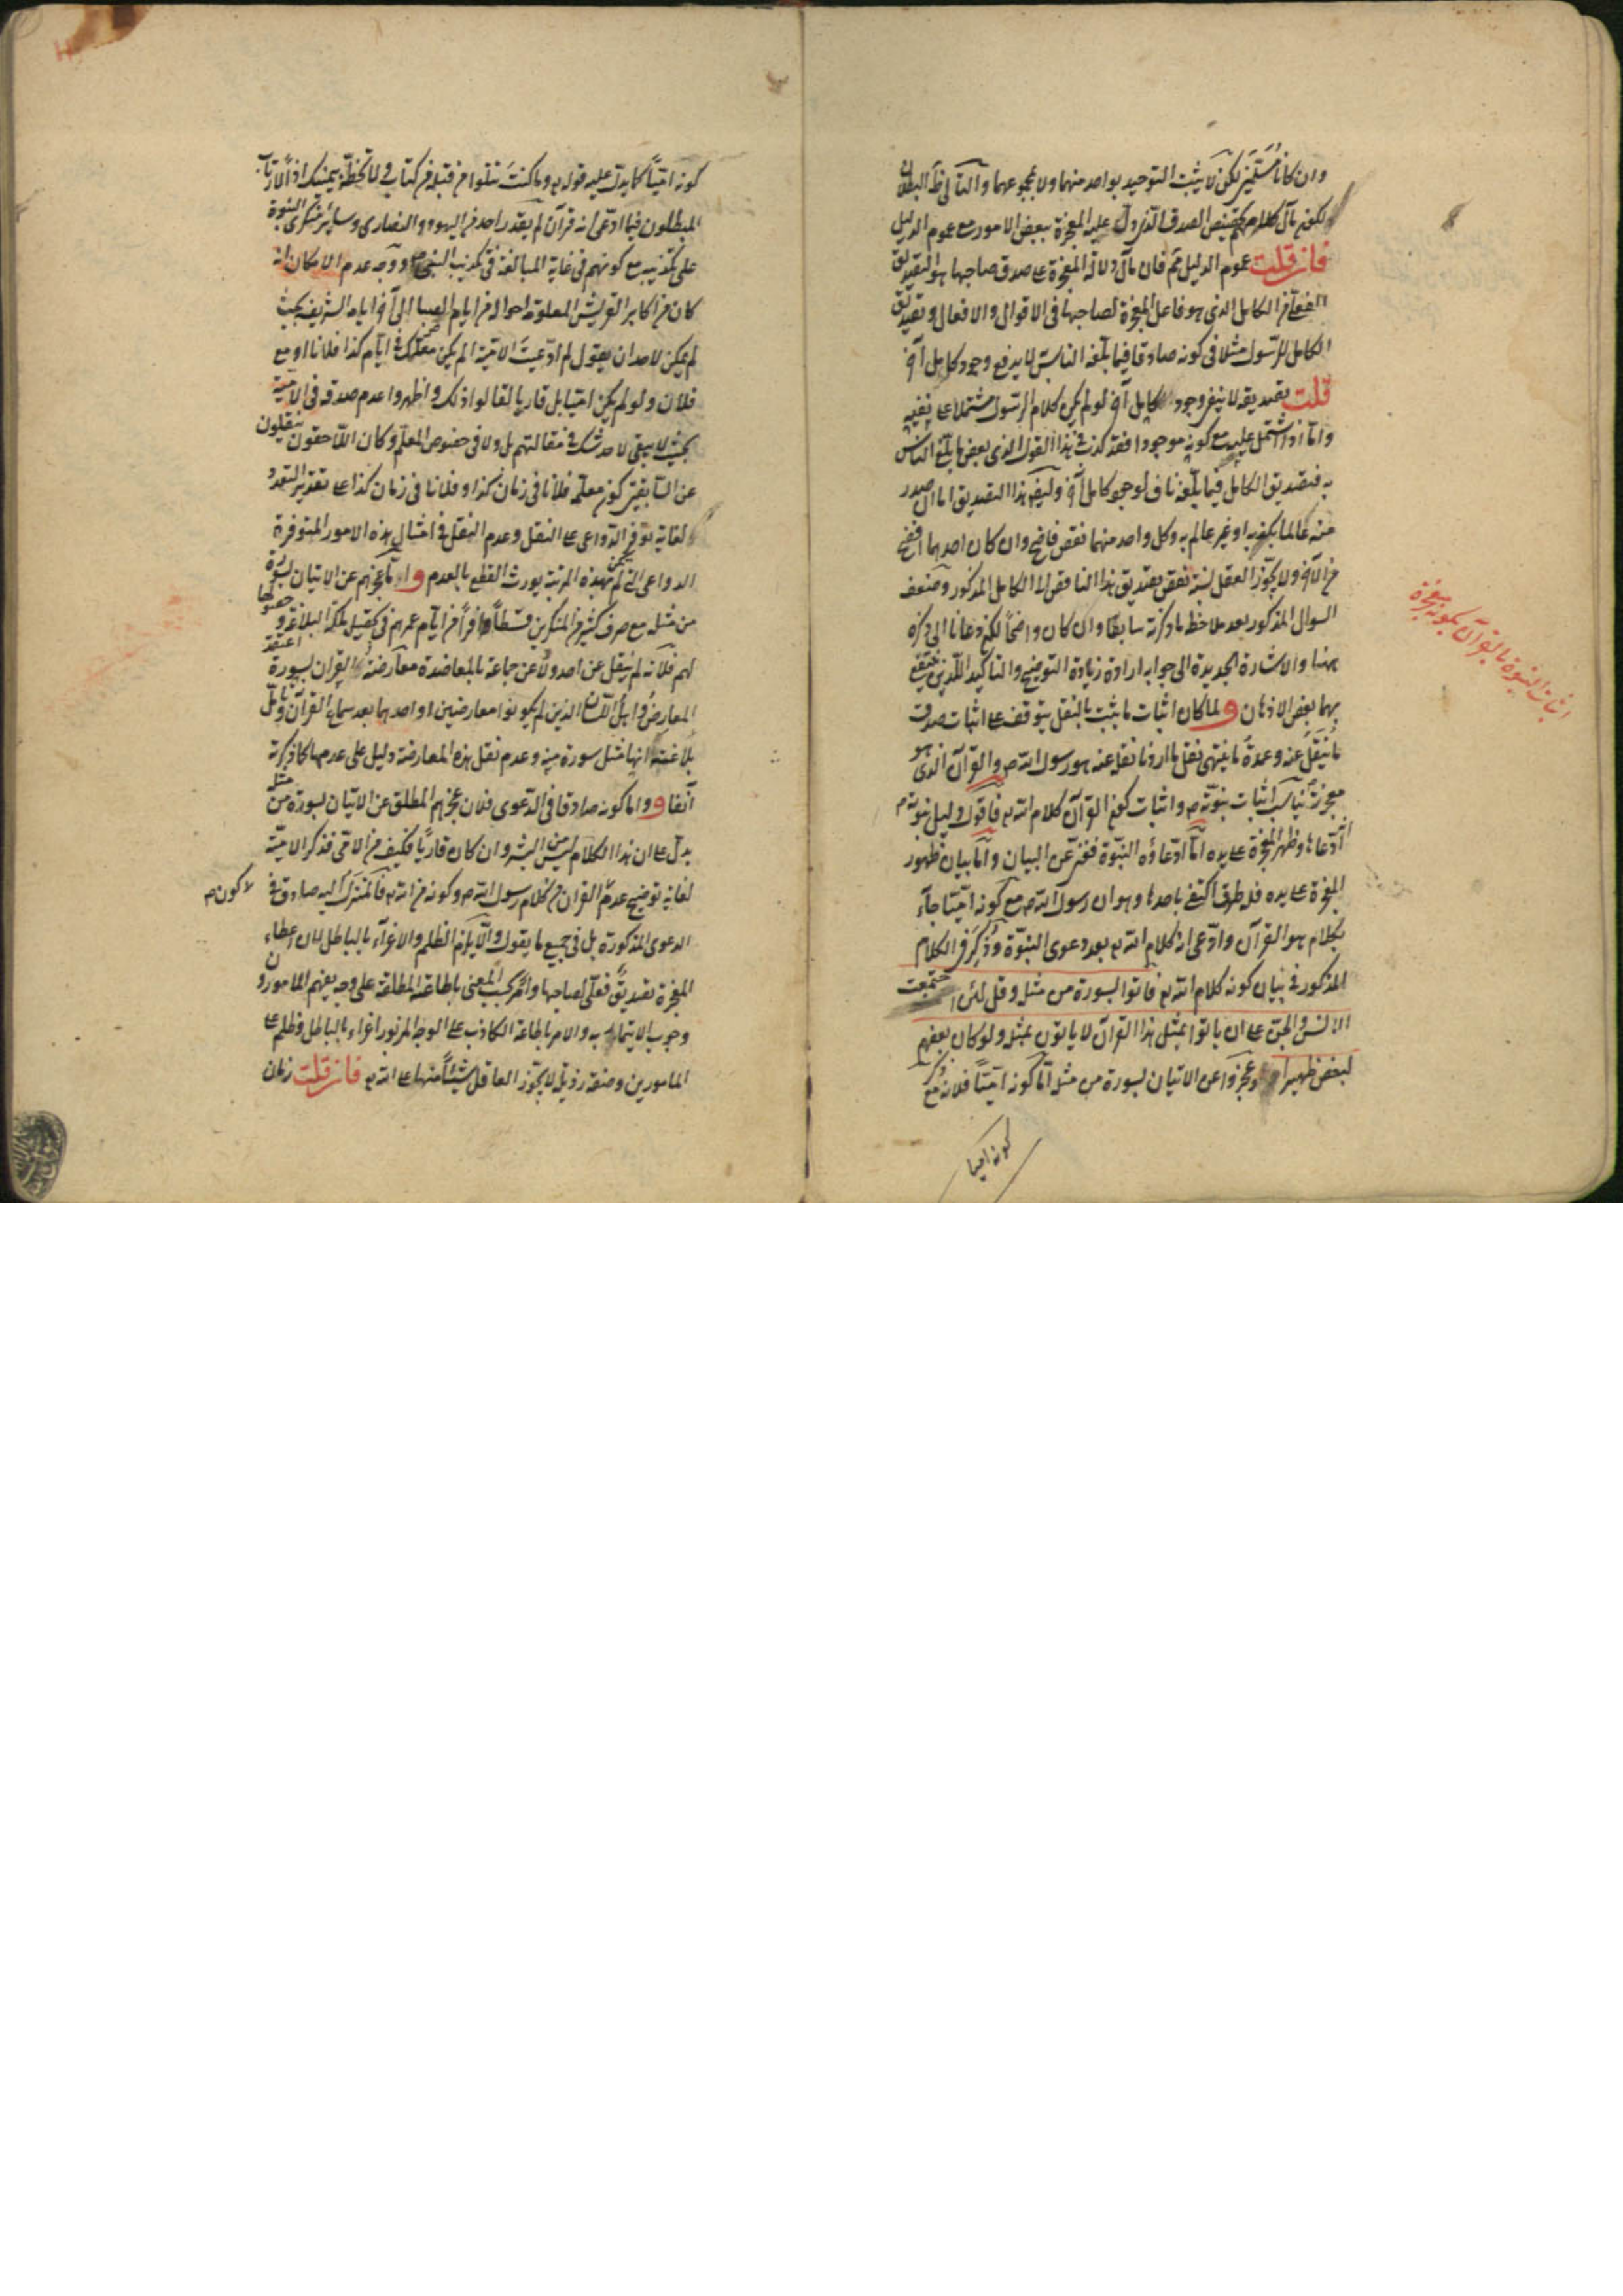 وان كانا مستقيمين لكن لا يثبت التوحيد بواحد منهما ولا بمجموعهما والتالى ظ البطلان
لكون مآل كلامكم تخصيص الصدق الذى دل عليه المعجزة ببعض الامور مع عموم الدليل
فان قلت عموم الدليل مم فان مآل دلالة المعجزة على صدق صاحبها هو التصديق
الفعلى من الكامل الذى هو فاعل المعجزة لصاحبها فى الاقوال والافعال وتصديق
الكامل للرسول مثلا فى كونه صادقا فيما بلغه الناس لا يدفع وجود كامل آخر
قلت تصديقه لا ينفى وجود كامل آخر لو لم يكن كلام الرسول مشتملا على نفيه
واما اذا اشتمل عليه مع كونه موجودا فقد كذب فى هذا القول الذى بعض ما بلغ الناس
به فتصديق الكامل فيما بلغه ناف لوجود كامل آخر وكيف هذا التصديق اما ان صدر
منه عالما بكذبه او غير عالم به وكل واحد منهما نقص فاضح وان كان احدهما افضح
من الآخر ولا يجوز العقل نسبة نقص تصديق هذا الناقص الى الكامل المذكور وضعف
السوال المذكور بعد ملاحظة ما ذكرته سابقا وان كان واضحا لكن دعانا الى ذكره
ههنا والاشارة الجديدة الى جوابه ارادة زيادة التوضيح والتاكيد اللذين ينتفع
بهما بعض الاذهان ولما كان اثبات ما يثبت بالنقل يتوقف على اثبات صدق من
ينقل عنه وعمدة ما ينتهى نقل ما اردنا نقله عنه هو رسول الله ص والقرآن الذى هو
معجزته يناسب اثبات نبوته ص واثبات كون القرآن كلام الله تع فاقول دليل نبوته ص
ادعاها وظهر المعجزة على يده اما ادعاؤه النبوة فغنى عن البيان واما بيان ظهور
المعجزة على يده فله طرق اكتفى باحدها وهو ان رسول الله ص مع كونه اميا جاء
بكلام هو القرآن وادعى انه كلام الله تع بعد دعوى النبوة وذكر فى الكلام
المذكور فى بيان كونه كلام الله تع فاتوا بسورة من مثله وقل لئن اجتمعت
الانس والجن على ان ياتوا بمثل هذا القرآن لا ياتون بمثله ولو كان بعضهم
لبعض ظهيرا وعجزوا عن الاتيان بسورة من مثله اما كونه اميا فلانه مع ذكر
كونه اميا
اثبات النبوة بالقرآن بكونه معجزة
كونه اميا كما يدل عليه قوله تع وما كنت تتلوا من قبله من كتاب ولا تخطه بيمينك اذا لارتاب
المبطلون فيما ادعى انه قرآن لم يقدر احد من اليهود والنصارى وسائر منكرى النبوة
على تكذيبه مع كونهم فى غاية المبالغة فى تكذيب النبى ص ووجه عدم الامكان انه
كان من اكابر القريش المعلومة احواله من ايام الصبا الى آخر ايامه الشريفة بحيث
لم يمكن لاحد ان يقول لم ادعيت الامية الم يكن معلمك فى ايام كذا فلانا او مع
فلان ولو لم يكن اميا بل قاريا لقالوا ذلك واظهروا عدم صدقه فى الامية
بحيث لا يبقى لاحد شك فى مقالتهم بل ولا فى خصوص المعلم وكان اللاحقون ينقلون
عن السابقين كون معلمه فلانا فى زمان كذا وفلانا فى زمان كذا على تقدير التعدد
لغاية توفر الدواعى على النقل وعدم النقل فى امثال هذه الامور المتوفرة
الدواعى التى لم يخف بهذه المرتبة يورث القطع بالعدم واما عجزهم عن الاتيان بسورة
من مثله مع صرف كثير من المنكرين قسطا وافرا من ايام عمرهم فى تحصيل ملكة البلاغة وحصولها
لهم فلانه لم ينقل عن احد ولا عن جماعة بالمعاضدة معارضة القرآن بسورة اعتقد
المعارض واهل اللسان الذين لم يكونوا معارضين او احدهما بعد سماع القرآن وتامل
بلاغته انها مثل سورة منه وعدم نقل هذه المعارضة دليل على عدمها كما ذكرته
آنفا واما كونه صادقا فى الدعوى فلان عجزهم المطلق عن الاتيان بسورة من مثله
يدل على ان هذا الكلام ليس من البشر وان كان قاريا فكيف من الامى فذكر الامية
لغاية توضيح عدم كون القرآن من كلام رسول الله ص وكونه من الله تع فالمنزل اليه صادق فى
الدعوى المذكورة بل فى جميع ما يقول والا يلزم الظلم والاغراء بالباطل لان اعطاء
المعجزة تصديق فعلى لصاحبها وامر بحسب المعنى باطاعته المطلقة على وجه يفهم المامورون
وجوب الايتمار به والامر باطاعة الكاذب على الوجه المزبور اغراء بالباطل وظلم على
المامورين وصفة رذيلة لا يجوز العاقل شيئا منها على الله تع فان قلت زمان